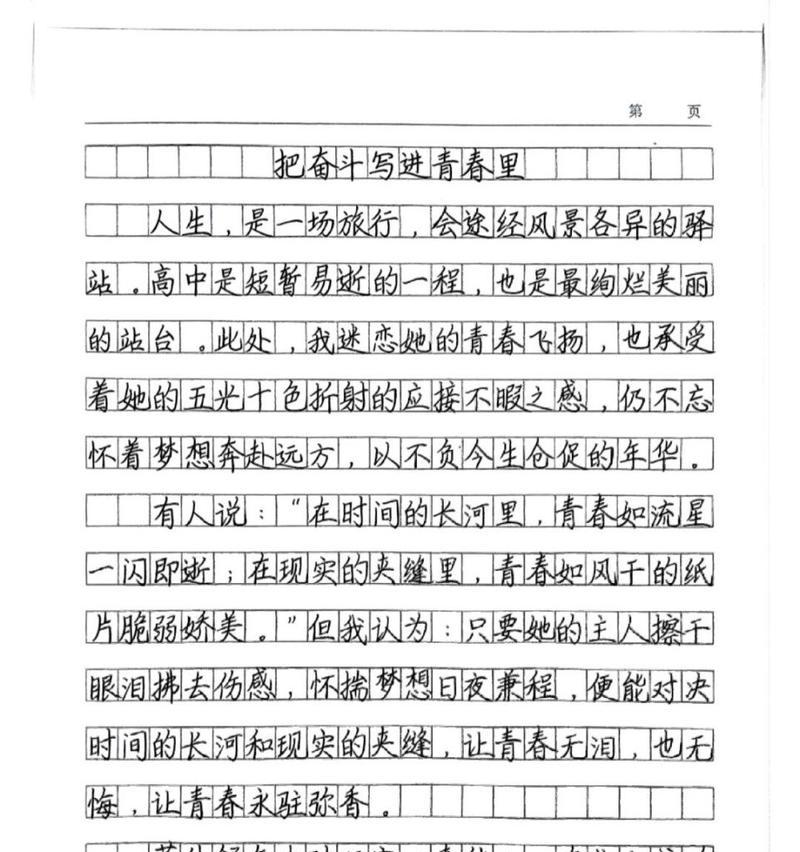 第 页
把奋斗写进青春里
人生，是一场旅行，会途经风景各异的驿
站。高中是短暂易逝的一程，也是最绚烂美丽
的站台。此处，我迷恋她的青春飞扬，也承受
着她的五光十色折射的应接不暇之感，仍不忘
怀着梦想奔赴远方，以不负今生仓促的年华。
有人说：“在时间的长河里，青春如流星
一闪即逝；在现实的夹缝里，青春如风干的纸
片脆弱娇美。”但我认为：只要她的主人擦干
眼泪拂去伤感，怀揣梦想日夜兼程，便能对决
时间的长河和现实的夹缝，让青春无泪，也无
悔，让青春永驻弥香。